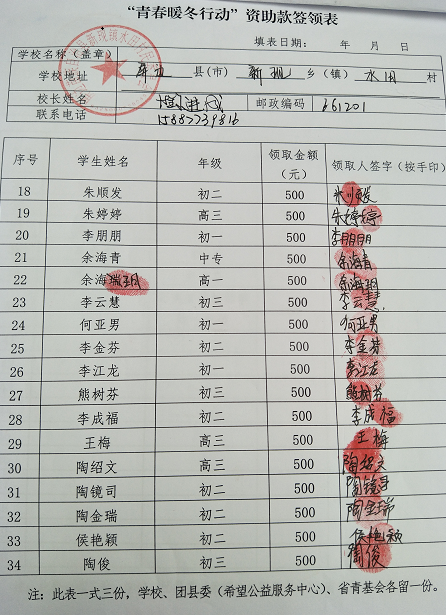 “青春暖冬行动”资助款签领表
填表日期： 年 月 日
学校名称（盖章）
学校地址 县（市） 新现 乡（镇） 水田 村
校长姓名 邮政编码 661201
联系电话 15887739816
序号 学生姓名 年级 领取金额（元） 领取人签字（按手印）
18 朱顺发 初二 500
19 朱婷婷 高三 500 朱婷婷
20 李朋朋 初一 500 李朋朋
21 余海青 中专 500 余海青
22 余海瑞玥 高一 500
23 李云慧 初三 500 李云慧
24 何亚男 初一 500 何亚男
25 李金芬 初二 500 李金芬
26 李江龙 初一 500 李江龙
27 熊树芬 初三 500 熊树芬
28 李成福 初二 500 李成福
29 王梅 高三 500 王梅
30 陶绍文 高三 500 陶绍文
31 陶镜司 初二 500 陶镜司
32 陶金瑞 初二 500 陶金瑞
33 侯艳颖 初二 500 侯艳颖
34 陶俊 初三 500 陶俊
注：此表一式三份，学校、团县委（希望公益服务中心）、省青基会各留一份。